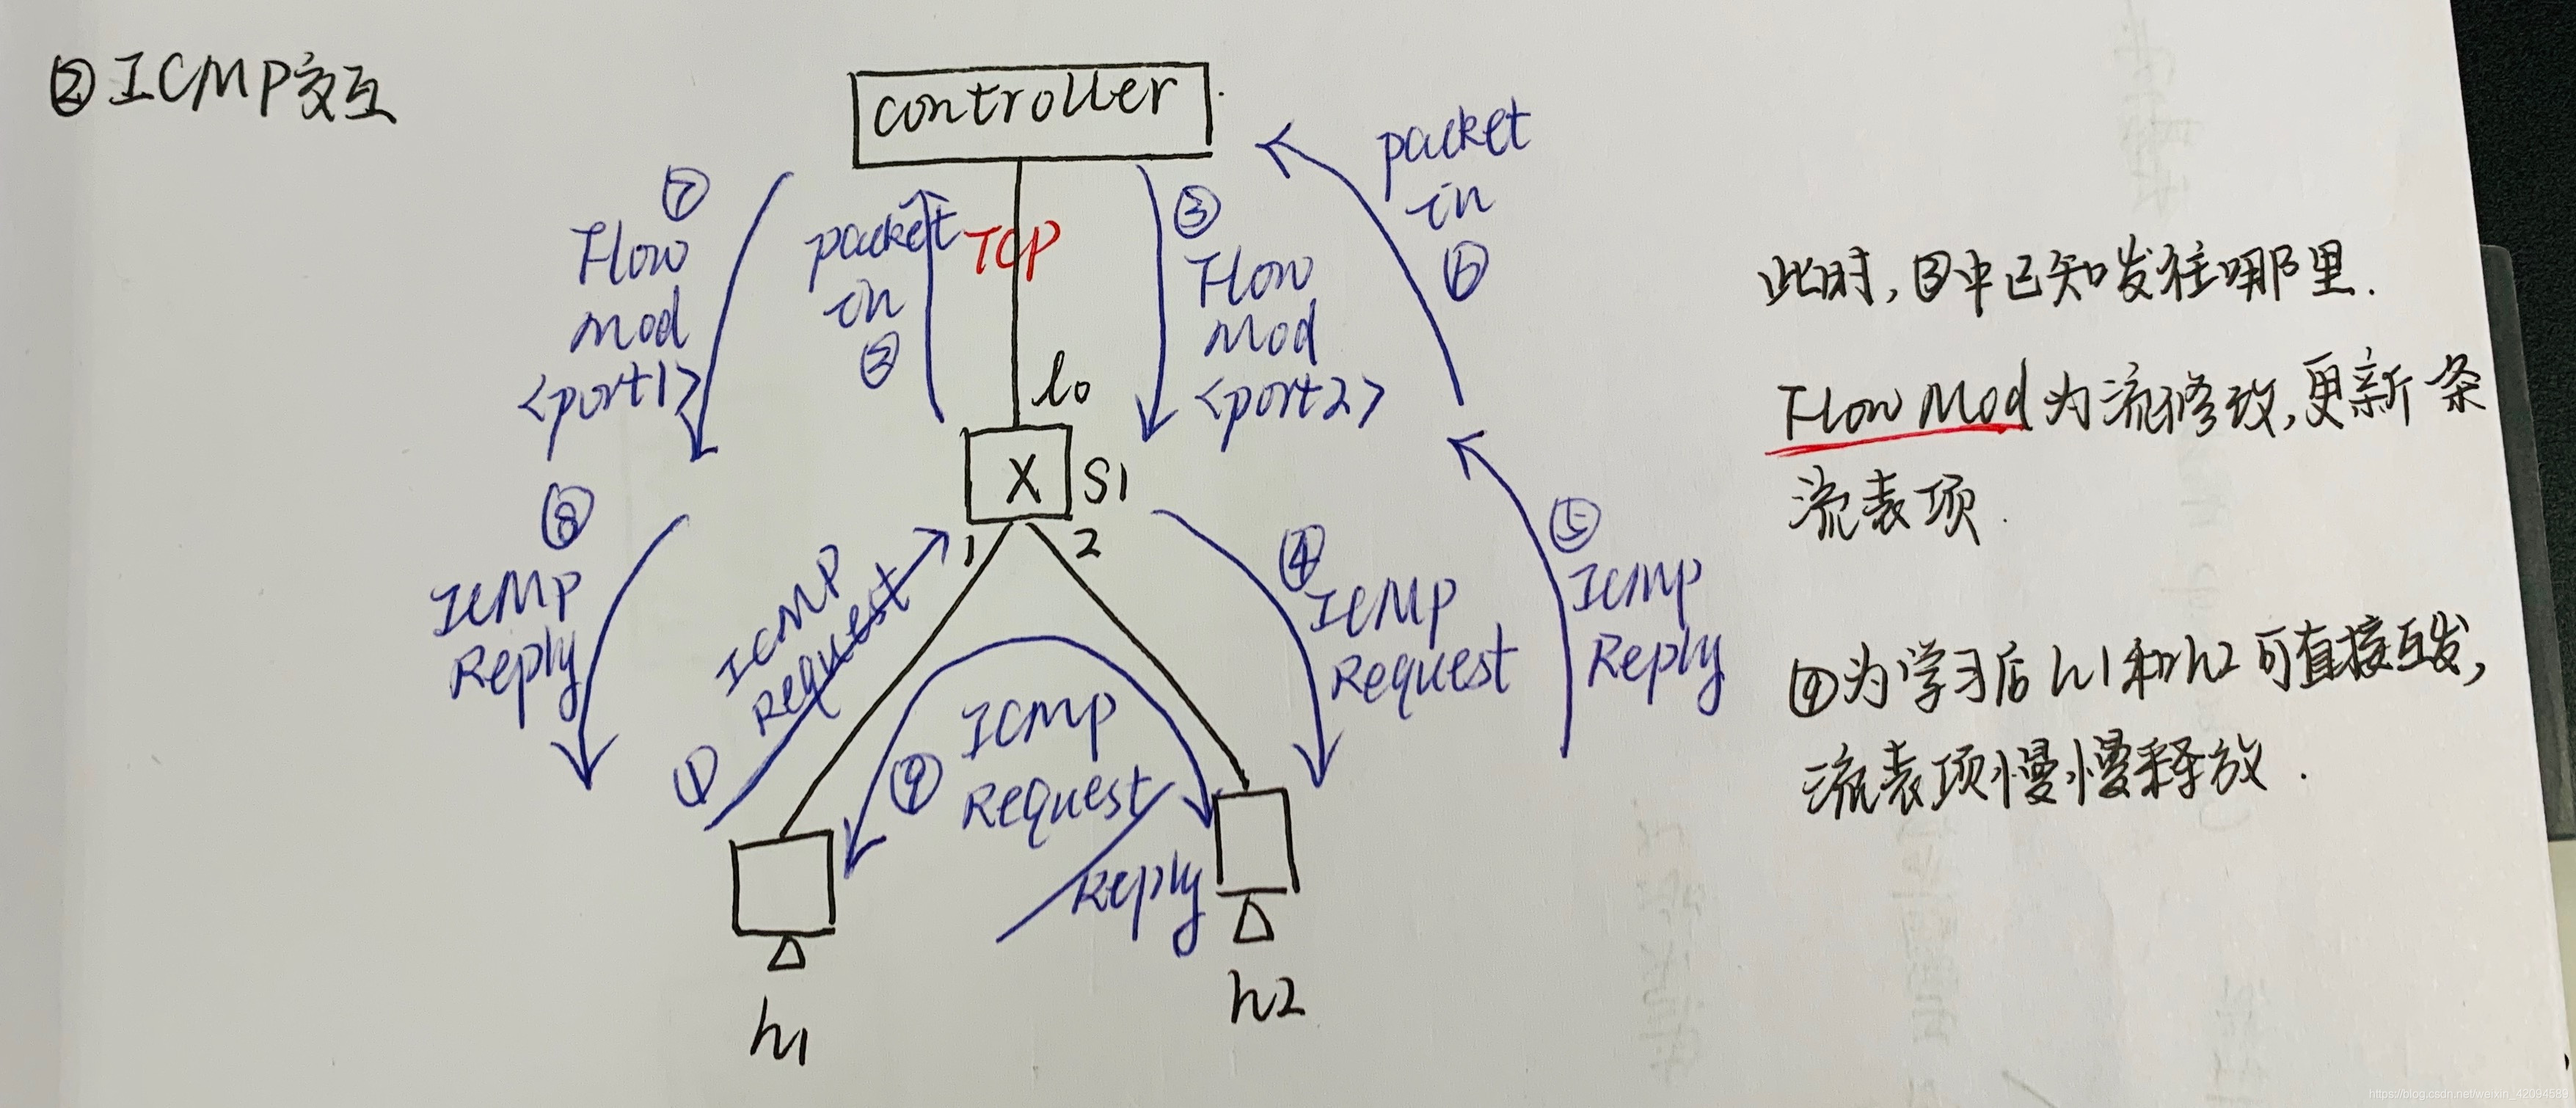 ②ICMP交互
controller
⑦
Flow
Mod
<port1>
packet
in
②
TCP
③
Flow
Mod
<port2>
packet
in
⑥
lo
X
S1
1
2
⑧
ICMP
Reply
①
ICMP
Request
④
ICMP
Request
⑤
ICMP
Reply
⑨
ICMP
Request
Reply
h1
h2
此时,③中已知发往哪里.
Flow Mod为流修改,更新一条
流表项.
⑨为学习后h1和h2可直接互发,
流表项慢慢释放.
https://blog.csdn.net/weixin_42094589